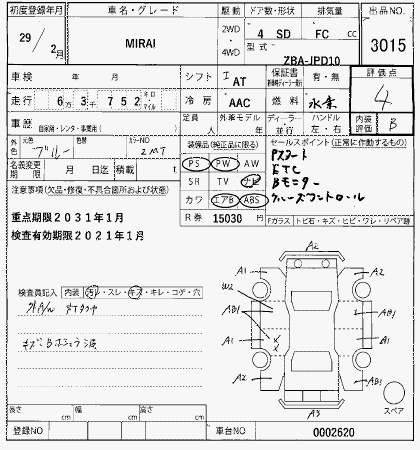 初度登録年月 車名・グレード 駆動 ドア数・形状 排気量 出品NO.
29/2月 MIRAI 2WD・4WD 4 SD FC cc 3015
型式 ZBA-JPD10
車検 年 月 シフト I AT 保証書 有・無 評価点 4
走行 6万3千752キロ・マイル 冷房 AAC 燃料 水素
車歴 自家用・レンタ・事業用( ) 定員 人 外車モデル 年 ディーラー・並行 ハンドル 左・右 内装評価 B
外色 元色 ブルー 色替 カラーNO 2M7 装備品(純正品に限る) セールスポイント(正常に作動するもの)
PS PW AW Pスタート
名義変更期限 月 日迄 積載 t ETC
注意事項(欠品・修復・不具合箇所および状態) SR TV ナビ Bモニター
カワ エアB ABS クルーズコントロール
重点期限2031年1月 R券 15030円 Fガラス トビ石・キズ・ヒビ・ワレ・リペア跡
検査有効期限2021年1月
A2
検査員記入 内装 汚レ・スレ・キズ・キレ・コゲ・穴
A1 A1
W2 AB1
キズ
AB1 A1
A2 AB1
A3
スペア
長さ cm 幅 cm 高さ cm
登録NO 車台NO 0002620